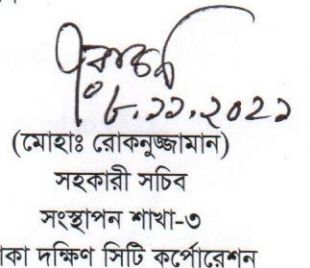 ০৮.১১.২০২১
(মোহাঃ রোকনুজ্জামান)
সহকারী সচিব
সংস্থাপন শাখা-৩
কা দক্ষিণ সিটি কর্পোরেশন